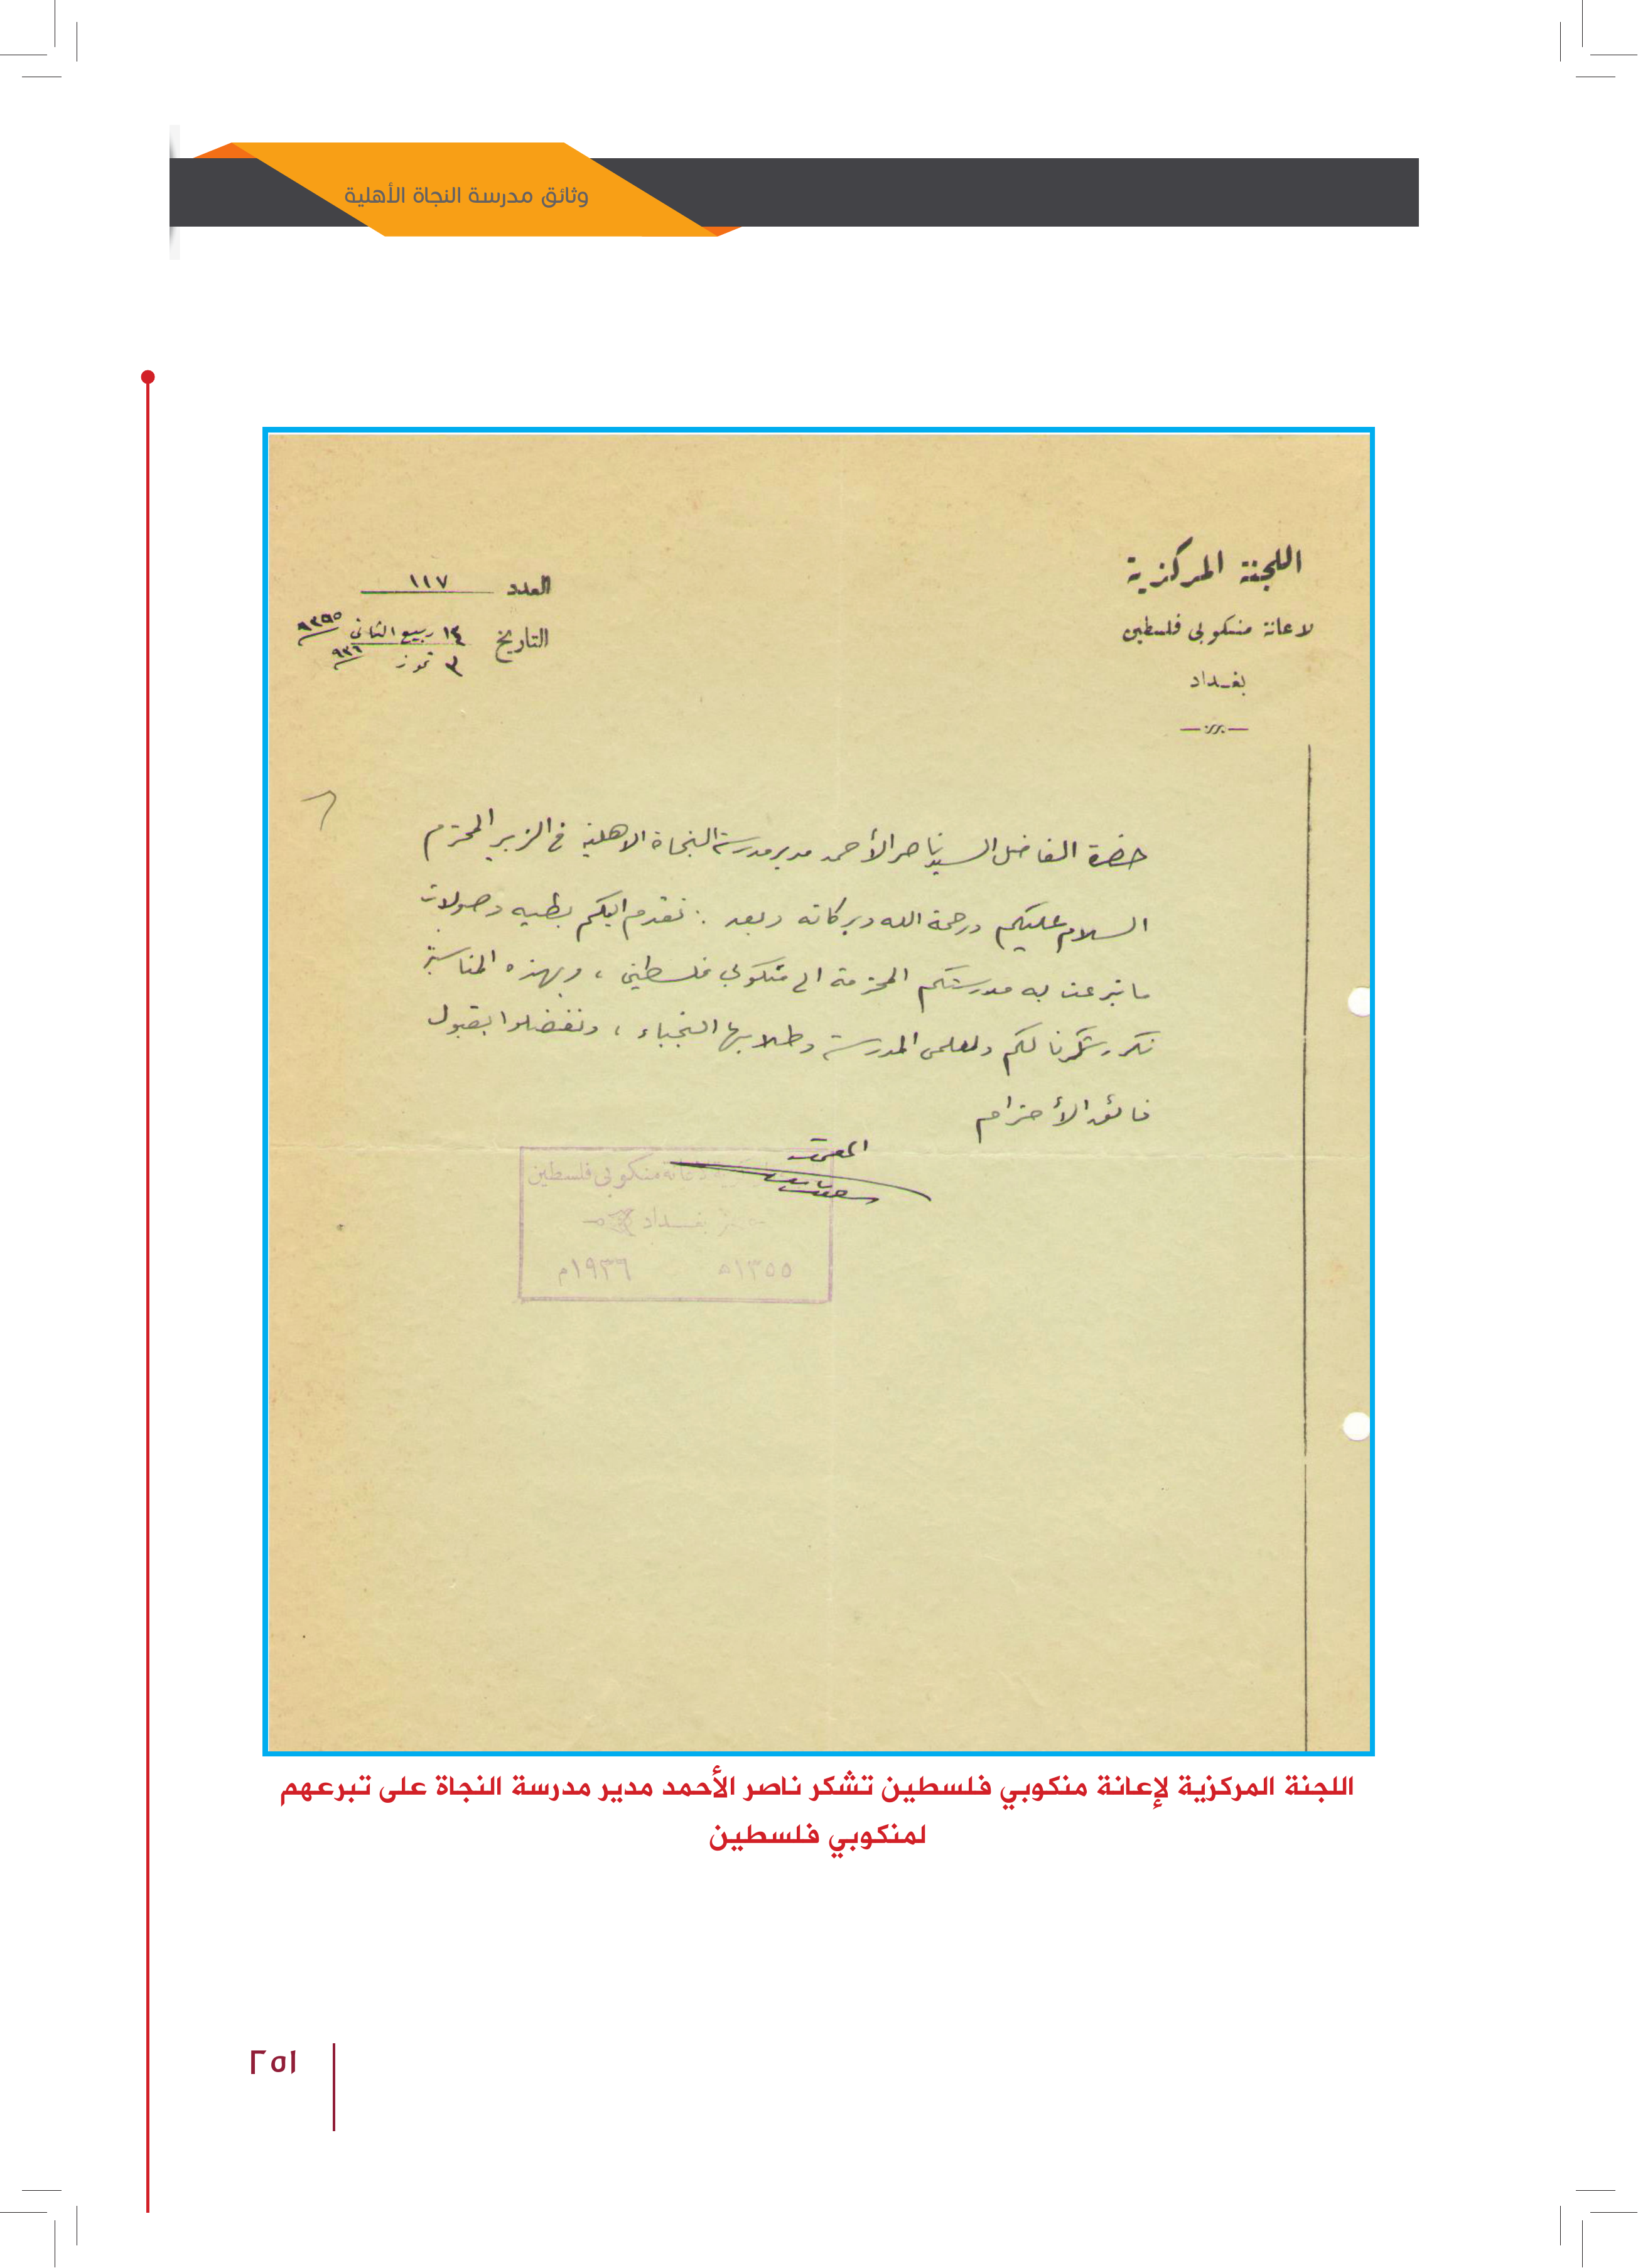 وثائق مدرسة النجاة الأهلية
اللجنة المركزية
لاعانة منكوبي فلسطين
بغداد
العدد ١١٧
التاريخ ١٤ ربيع الثاني
٣ تموز ٩٣٦
حضرة الفاضل السيد ناصر الأحمد مدير مدرسة النجاة الاهلية في الزبير المحترم
السلام عليكم ورحمة الله وبركاته وبعد : نقدم اليكم بطيه وصولات
ما تبرعت به مدرستكم المحترمة الى منكوبي فلسطين ، وبهذه المناسبة
نكرر شكرنا لكم ولمعلمي المدرسة وطلابها النجباء ، وتفضلوا بقبول
فائق الأحترام
المعتمد
لاعانة منكوبي فلسطين
بغداد
١٣٥٥هـ ١٩٣٦م
اللجنة المركزية لإعانة منكوبي فلسطين تشكر ناصر الأحمد مدير مدرسة النجاة على تبرعهم
لمنكوبي فلسطين
٢٥١